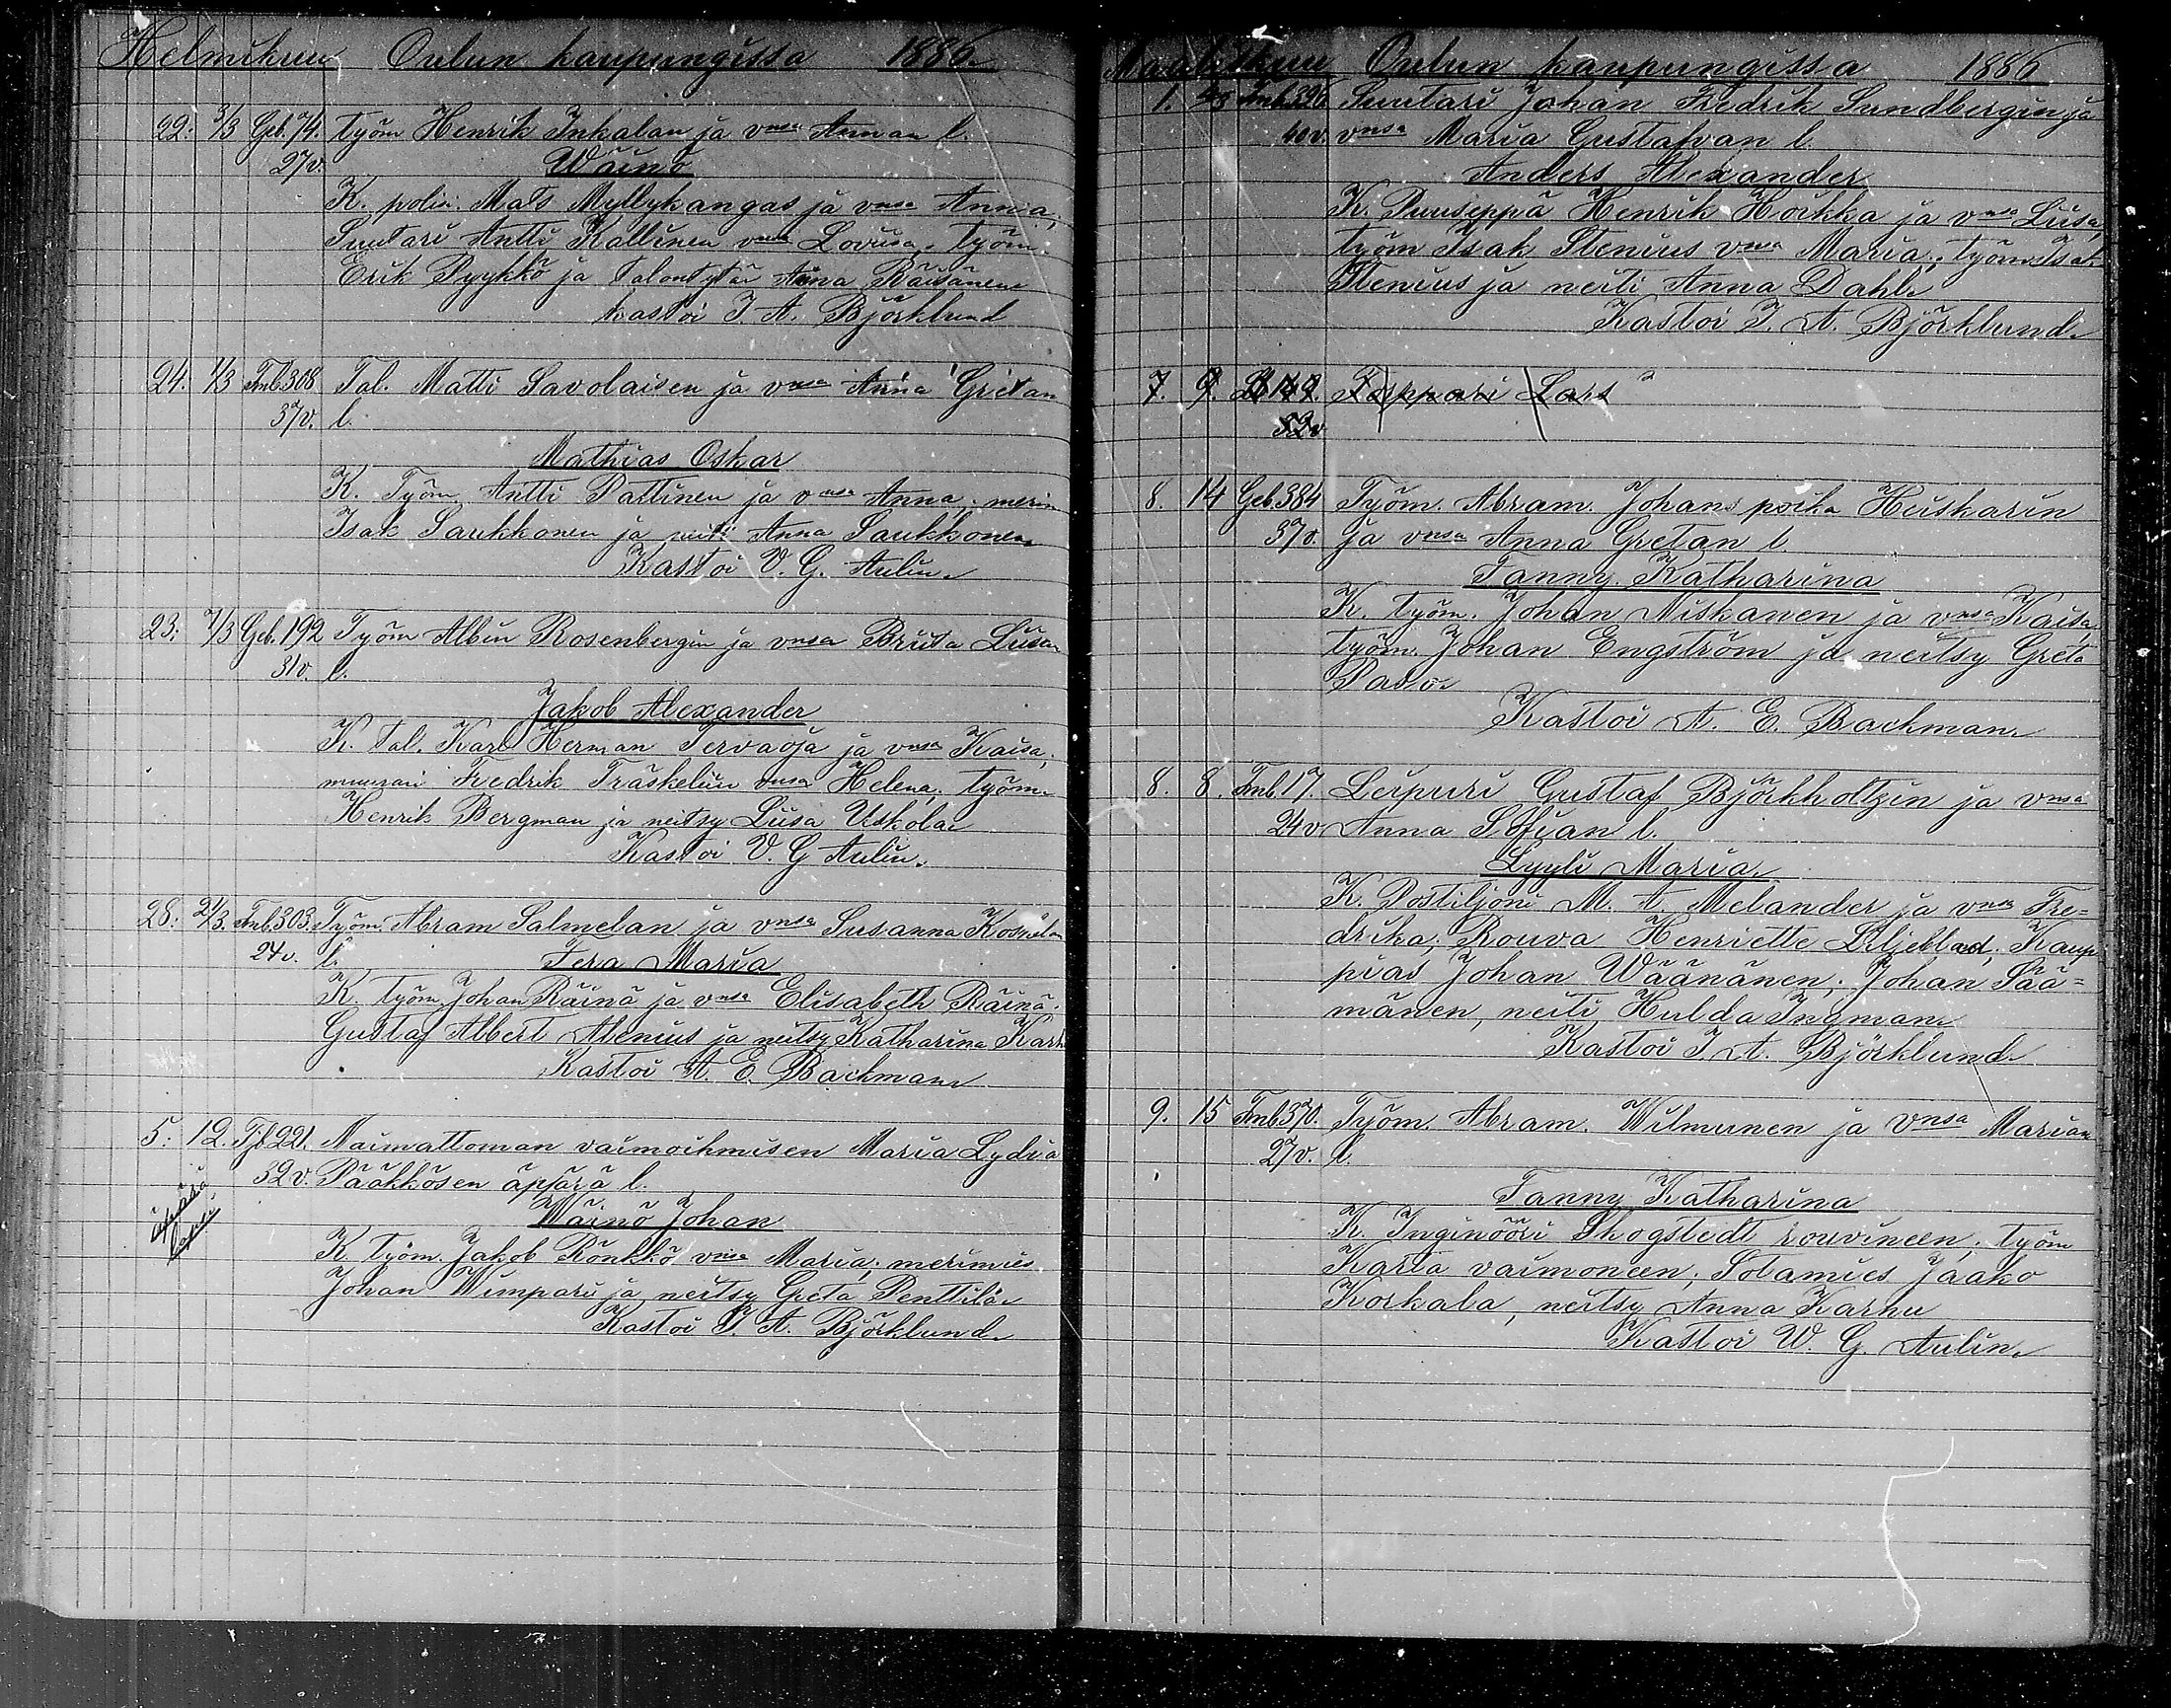 Helmikuu Oulun kaupungissa 1886.
22. 3/3 Geb. 74. työm Henrik Inkalan ja vnsa Annan l.
27v. Wäinö
K. polis. Mats Myllykangas ja vnsa Anna;
Suutari Antti Kallinen vnsa Lovisa; työm.
Erik Pyykkö ja talontytär Anna Räisänen
kastoi J. A. Björklund
24. 1/3 Fmb308 Tal. Matti Savolaisen ja vnsa Anna Gretan
37v. l.
Mathias Oskar
K. Työm. Antti Pattinen ja vnsa Anna; merim
Isak Saukkonen ja neiti Anna Saukkonen
Kastoi V. G. Aulin.
23. 7/3 Geb. 192 Työm Albin Rosenbergin ja vnsa Briita Liisan
31v. l.
Jakob Alexander
K. tal. Karl Herman Tervaoja ja vnsa Kaisa;
muurari Fredrik Träskelin vnsa Helena; työm.
Henrik Bergman ja neitsy Liisa Uskola
Kastoi V. G Aulin.
28. 21/3. Fmb.303. Työm. Abram Salmelan ja vnsa Susanna
24v. l. Fera Maria
K. työm Johan Räinä ja vnsa Elisabeth Räinä;
Gustaf Albert Alenius ja neitsy Katharina
Kastoi A. E. Bachman
5. 12. Tjb221. Naimattoman vaimoihmisen Maria Lydia
32v. Pääkkösen äpärä l.
äpärä
lapsi
Wäinö Johan
K. työm. Jakob Rönkkö vnsa Maria; merimies
Johan Wimpari ja neitsy Greta Penttilä
Kastoi J. A. Björklund.
Maaliskuu Oulun kaupungissa 1886
1. Fmb.396 Suutari Johan Fredrik Sundbergin ja
40v. vnsa Maria Gustafvan l.
Anders Alexander
K. Puuseppä Henrik Hoikka ja vnsa Liisa;
työm Isak Stenius vnsa Maria; työm Isak
Stenius ja neiti Anna Dahl
Kastoi J. A. Björklund.
7. 9. 149. Torppari Lars
52v
8. 14 Geb.384 Työm. Abram. Johans poika Heiskarin
37v. ja vnsa Anna Gretan l.
Fanny Katharina
K. työm. Johan Niskanen ja vnsa Kaisa;
työm. Johan Engström ja neitsy Greta
Paso.
Kastoi A. E. Bachman.
8. 8. Fmb17. Leipuri Gustaf Björkholtzin ja vnsa
24v Anna Sofian l.
Lyyli Maria.
K. Postiljoni M. A. Melander ja vnsa Fre=
drika; Rouva Henriette Liljeblad; Kaup
pias Johan Wäänänen; Johan Sää=
mänen, neiti Hulda Ingman
Kastoi J. A. Björklund.
9. 15 Fmb370. Työm. Abram. Wilmunen ja Vnsa Marian
27v. l.
Fanny Katharina
K. Inginööri Skogstedt rouvineen; työm
Karta vaimoneen; Sotamies Jaako
Korkala, neitsy Anna Karhu
Kastoi W. G. Aulin.